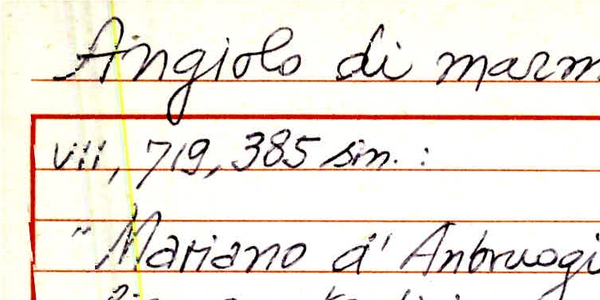 Angiolo di marm
vii, 719, 385 sin. :
"Mariano d'Anbruogi